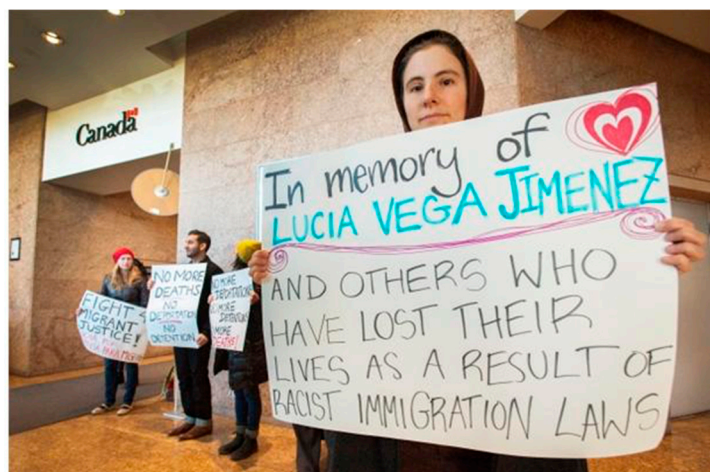 Canada
In memory of
LUCIA VEGA JIMENEZ
AND OTHERS WHO
HAVE LOST THEIR
LIVES AS A RESULT OF
RACIST IMMIGRATION LAWS
FIGHT 4
MIGRANT
JUSTICE!
NO MORE
DEATHS
NO
DEPORTATION
NO
DETENTION
NO MORE
DEPORTATIONS
NO MORE
DETENTIONS
NO MORE
DEATHS!